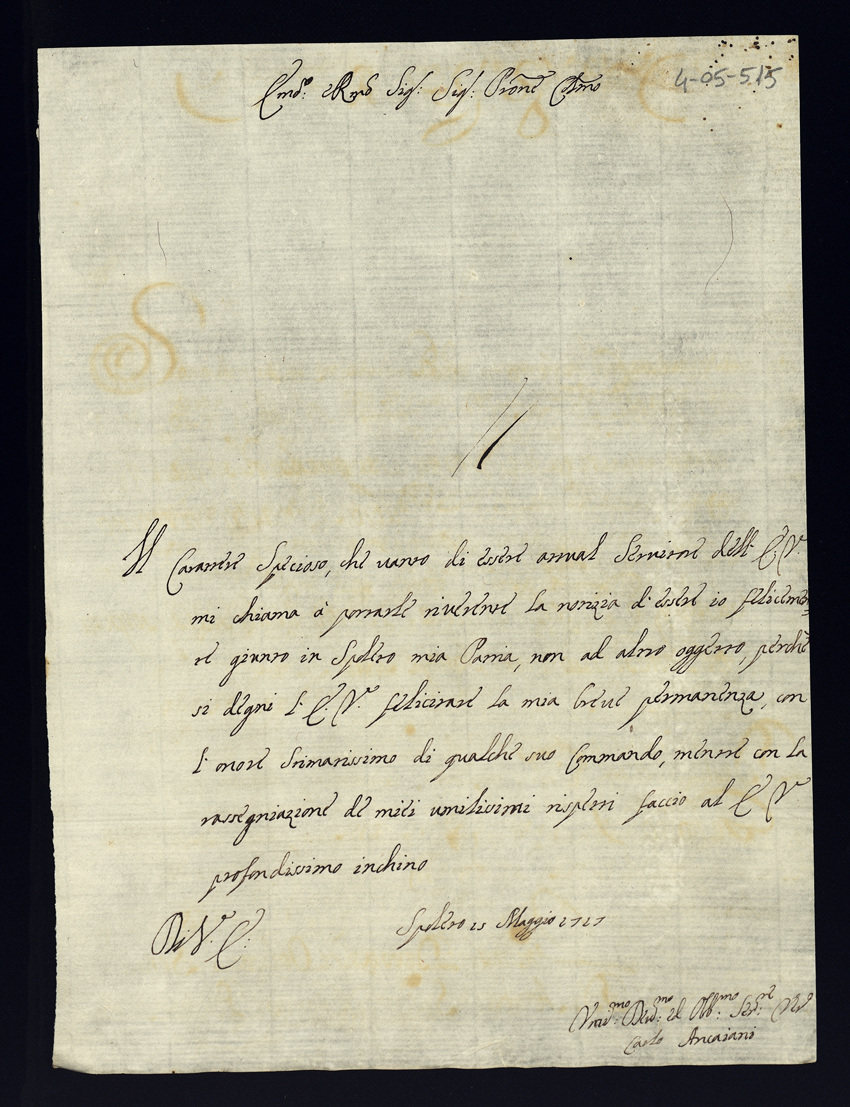 Em̃o: e Rmo Sig.r Sig.r Prõne Cõlmo
4-05-515
Il Carattere Specioso, che vanto di essere attual Servitore dell' E. V.
mi chiama à portarle riverente la notizia d' essere io felicemen=
te giunto in Spoleto mia Patria, non ad altro oggetto, perche
si degni l' E. V. felicitare la mia breve permanenza, con
l' onore stimatissimo di qualche suo Commando, mentre con la
rassegniazione de miei umilissimi rispetti faccio al E V.
profondissimo inchino
Di V. E.
Spoleto 15 Maggio 1717
Umil:mo Dev:mo ed Obb:mo Ser:re Vero
Carlo Ancaiani